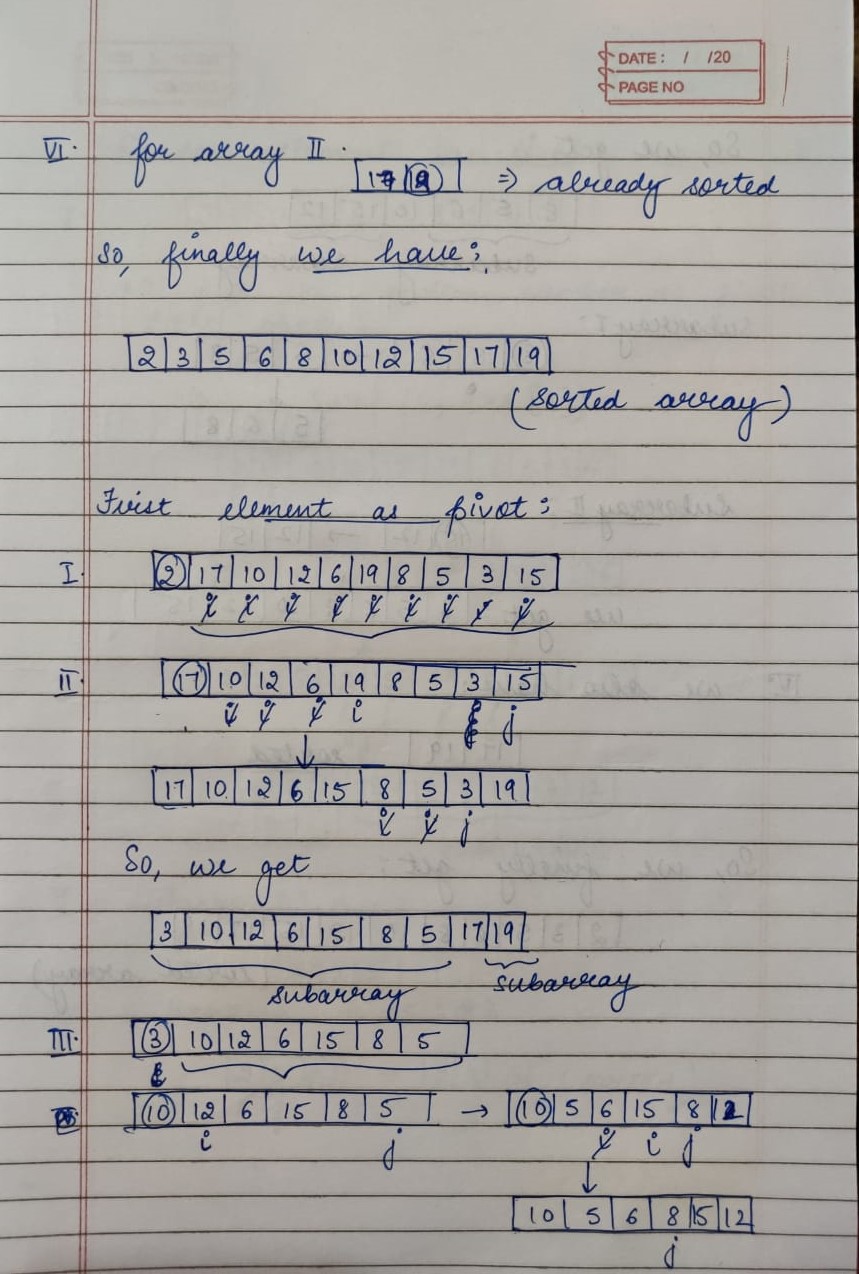 DATE: / /20
PAGE NO
VI. for array II.
17 19 ⇒ already sorted
So, finally we have:
2 3 5 6 8 10 12 15 17 19
(sorted array)
First element as pivot:
I. 2 17 10 12 6 19 8 5 3 15
i i i i i i i i i
II. 17 10 12 6 19 8 5 3 15
i i i i j
17 10 12 6 15 8 5 3 19
i i j
So, we get
3 10 12 6 15 8 5 17 19
subarray subarray
III. 3 10 12 6 15 8 5
10 12 6 15 8 5 → 10 5 6 15 8 12
i j i i j
10 5 6 8 15 12
j